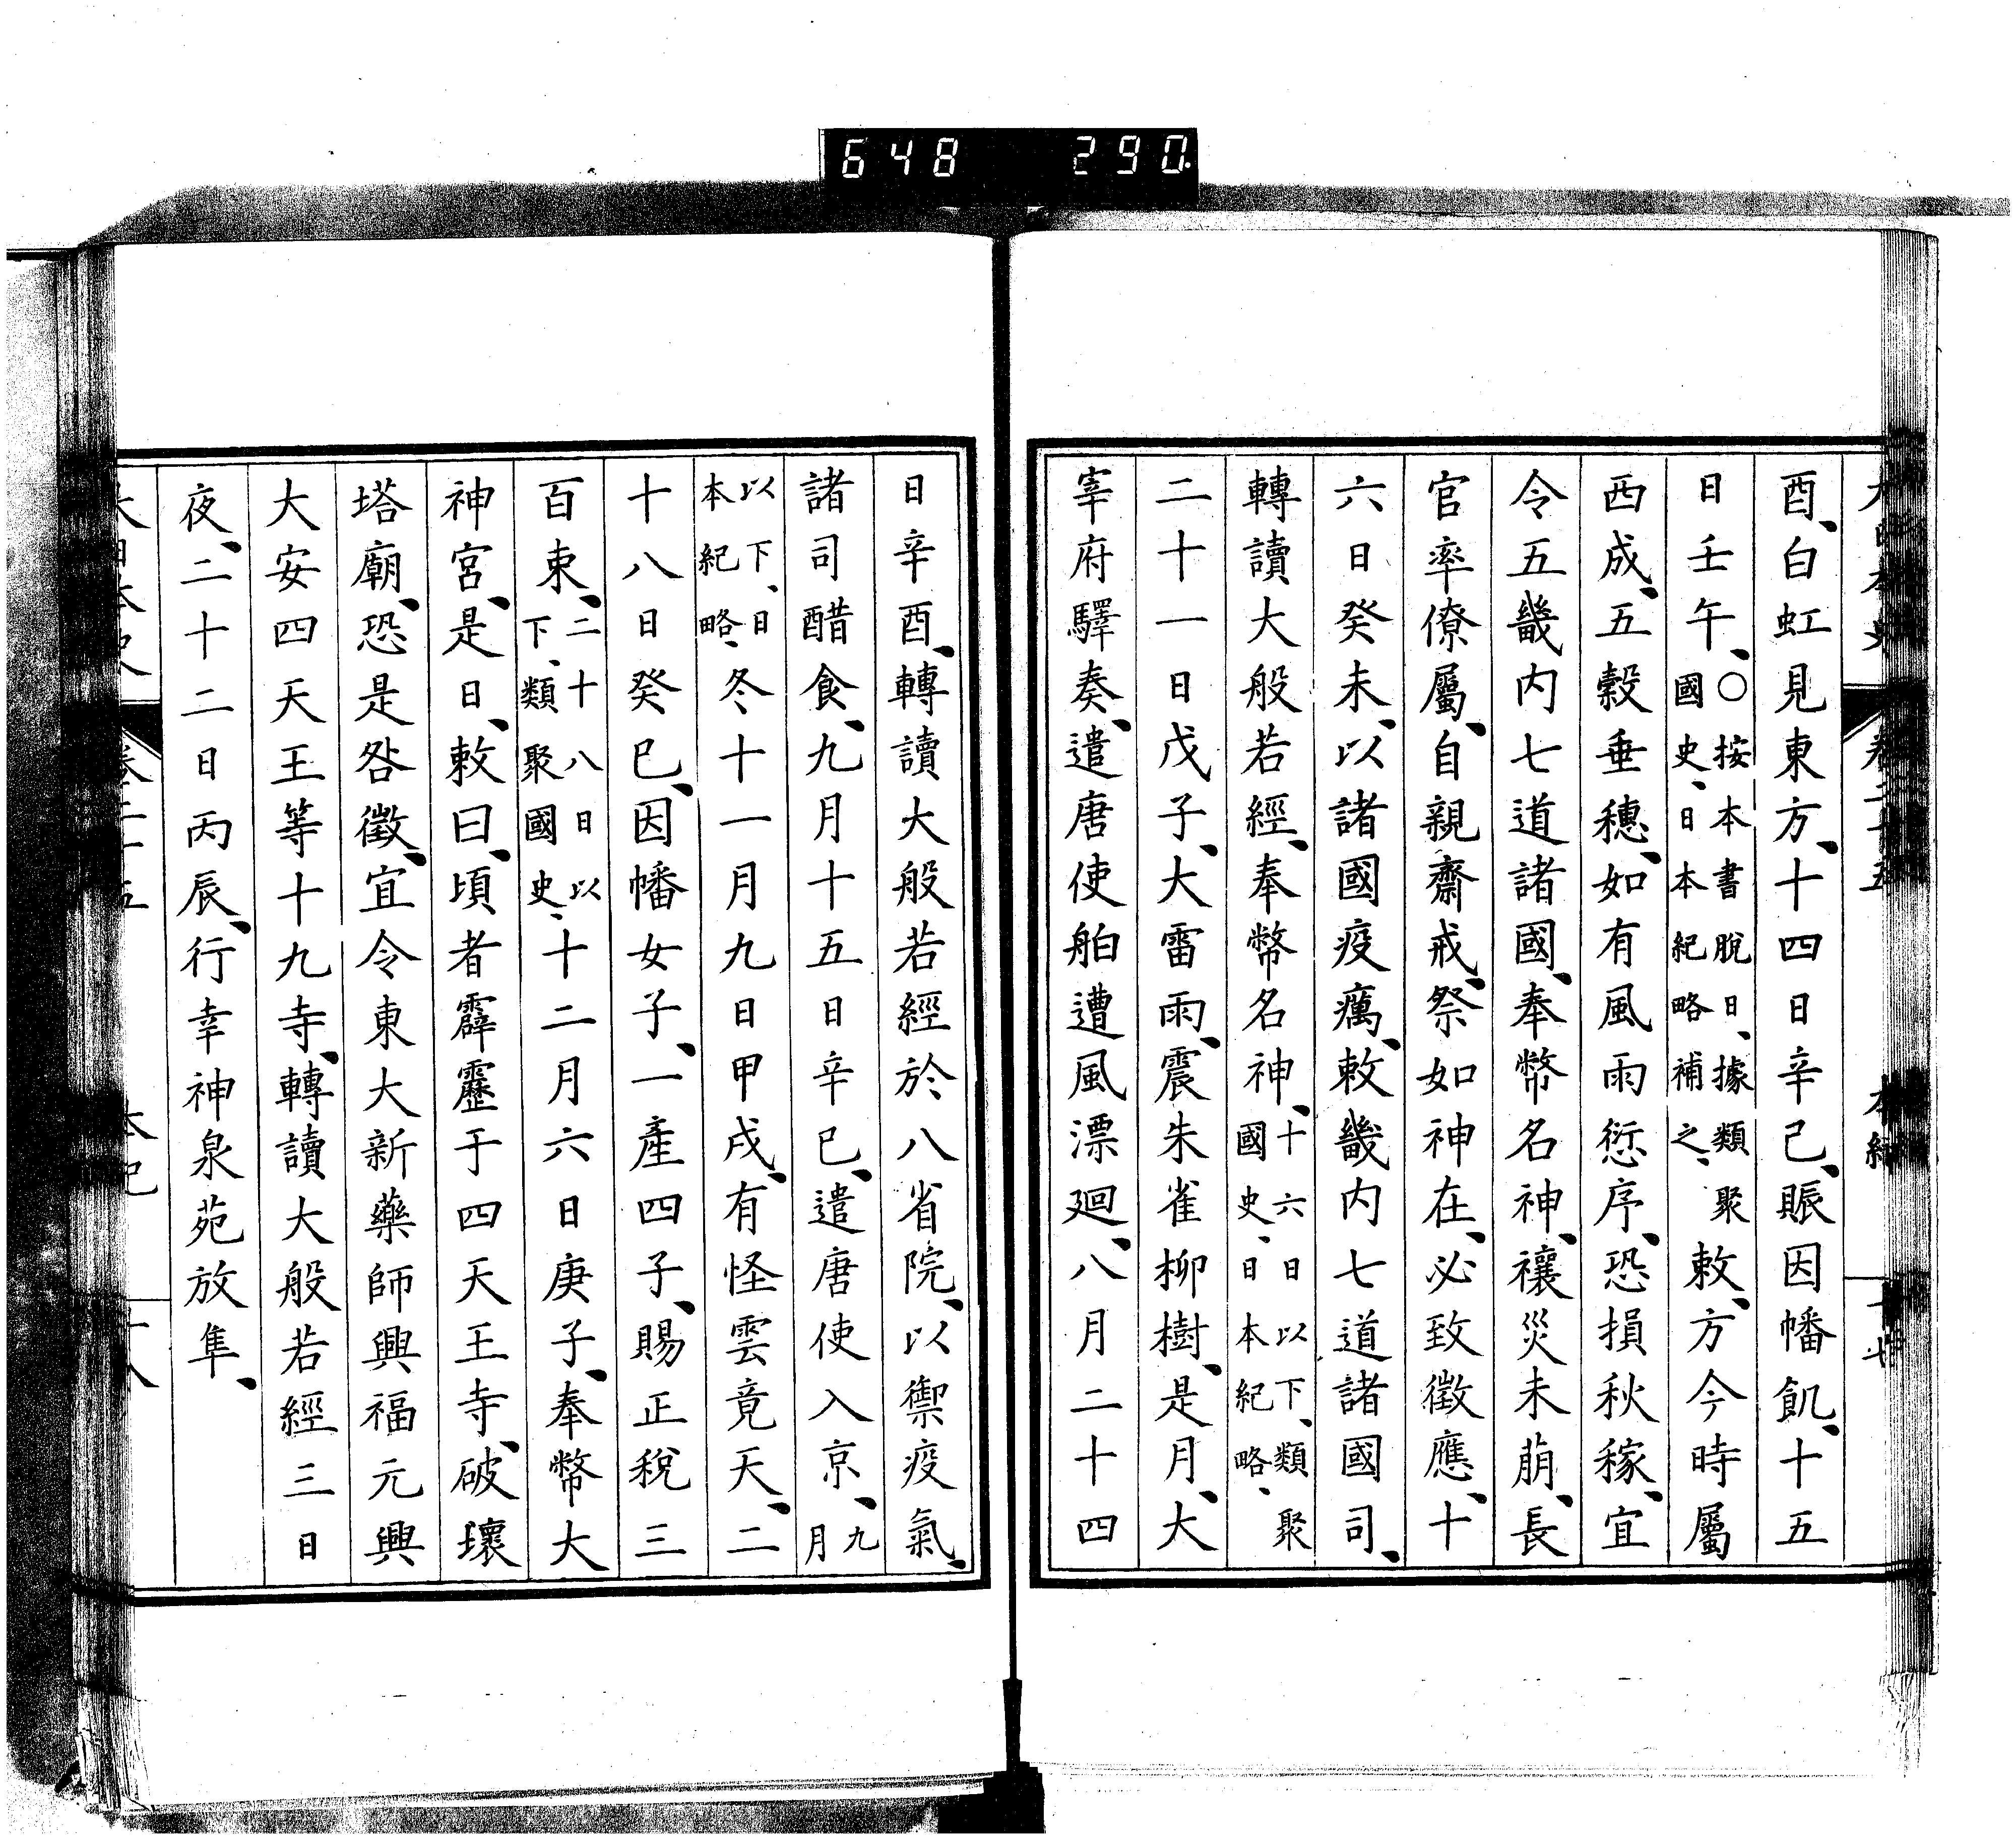 648 290
酉、白虹見東方、十四日辛巳、賑因幡飢、十五
日壬午、○按本書脫日、據類聚國史、日本紀略補之、敕、方今時屬
西成、五穀垂穗、如有風雨愆序、恐損秋稼、宜
令五畿内七道諸國、奉幣名神、禳災未萠、長
官率僚屬、自親齋戒、祭如神在、必致徵應、十
六日癸未、以諸國疫癘、敕畿内七道諸國司、
轉讀大般若經、奉幣名神、十六日以下、類聚國史、日本紀略、
二十一日戊子、大雷雨、震朱雀柳樹、是月、大
宰府驛奏、遣唐使舶遭風漂廻、八月二十四
日辛酉、轉讀大般若經於八省院、以禦疫氣、
諸司醋食、九月十五日辛巳、遣唐使入京、九月
以下、日本紀略、冬十一月九日甲戌、有怪雲竟天、二
十八日癸巳、因幡女子、一產四子、賜正稅三
百束、二十八日以下、類聚國史、十二月六日庚子、奉幣大
神宮、是日、敕曰、頃者霹靂于四天王寺、破壞
塔廟、恐是咎徵、宜令東大新藥師興福元興
大安四天王等十九寺、轉讀大般若經三日
夜、二十二日丙辰、行幸神泉苑放隼、